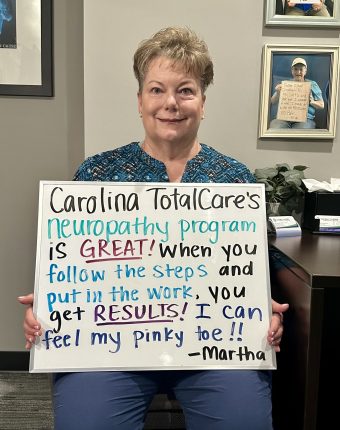 Carolina TotalCare's
neuropathy program
is GREAT! When you
follow the steps and
put in the work, you
get RESULTS! I can
feel my pinky toe!!
-Martha